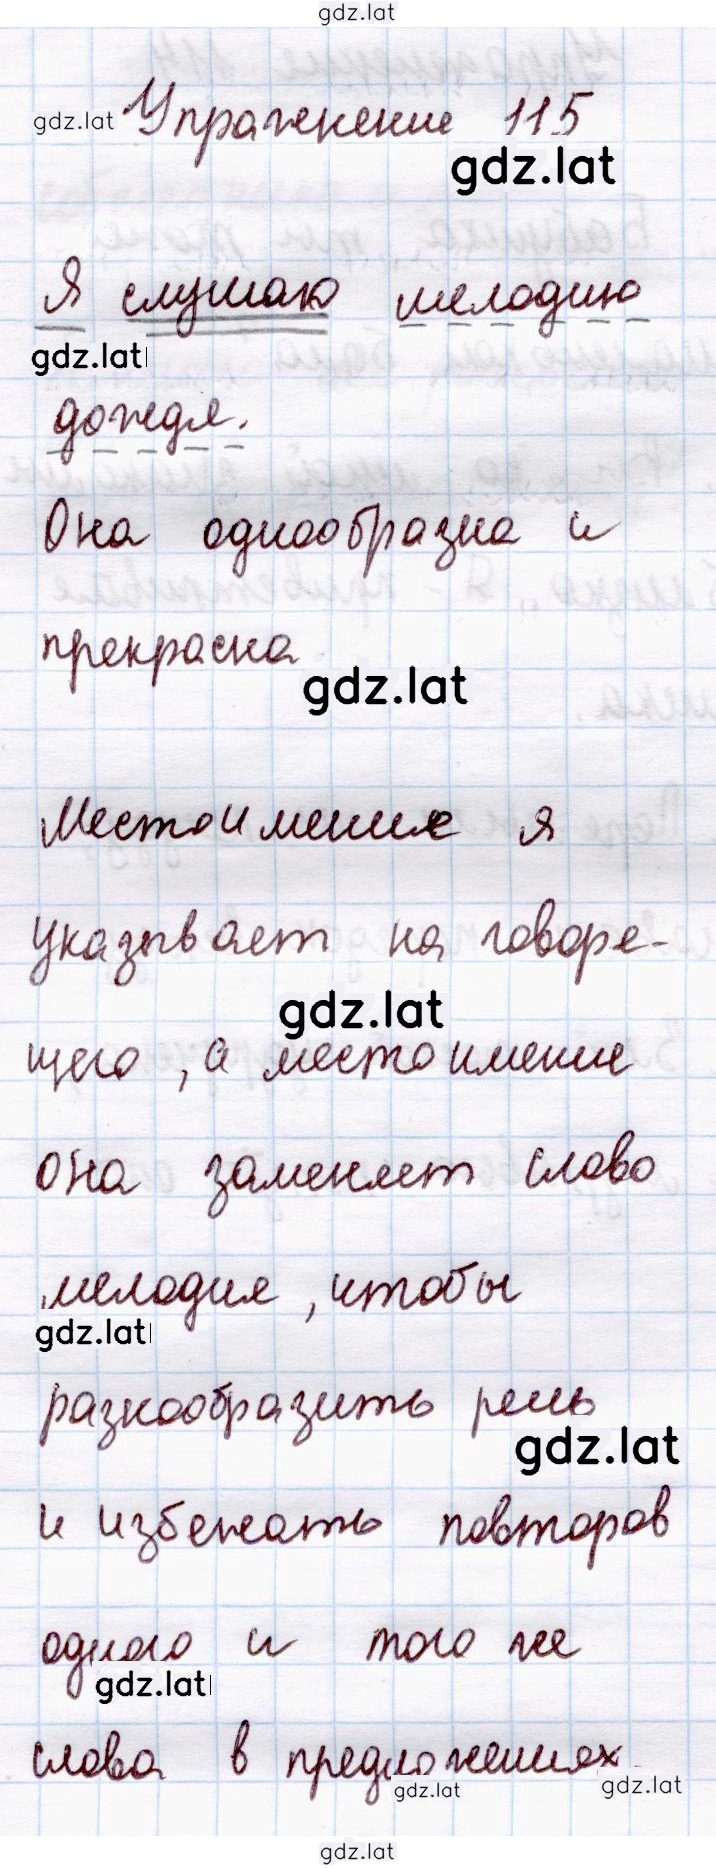 gdz.lat
gdz.lat Упражнение 115
gdz.lat
Я слушаю мелодию
gdz.lat
дождя.
Она однообразна и
прекрасна
gdz.lat
Местоимение я
указывает на говоре-
gdz.lat
щего, а местоимение
она заменяет слово
мелодия, чтобы
gdz.lat
разнообразить речь
gdz.lat
и избежать повторов
одного и того же
gdz.lat
слова в предложениях
gdz.lat gdz.lat
gdz.lat